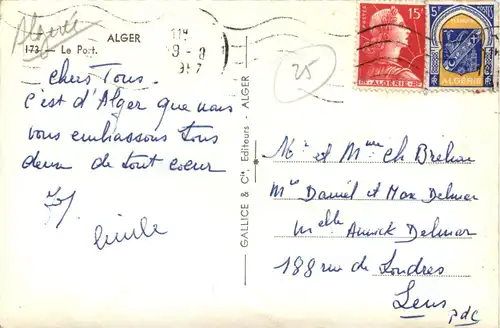 Algérie
ALGER
173 — Le Port.
11H
9 - 8
957
25
15F
POSTES
ALGERIE
5F
ALGÉRIE
Chers Tous.
C'est d'Alger que nous
vous embrassons tous
deux de tout coeur
Cécile
GALLICE & Cie, Editeurs - ALGER
Mr et Mme Ch Bréhon
Mrs Daniel et Max Delmar
Melle Annick Delmar
188 rue de Londres
Lens
PdC